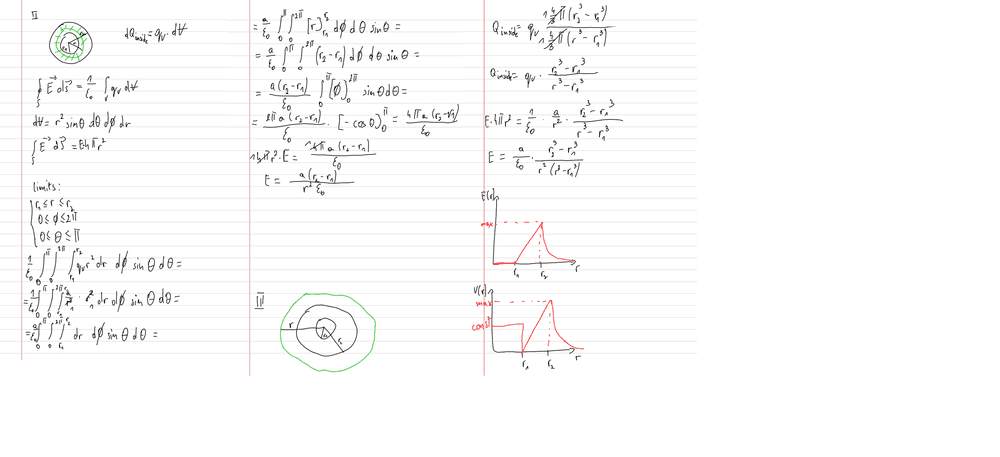 II
dQinside = qv · dV
∮s E⃗ ds⃗ = 1/ε0 ∫v qv dV
dV = r² sinθ dθ dφ dr
∫s E⃗ ds⃗ = E4πr²
limits:
r1 ≤ r ≤ r2
0 ≤ φ ≤ 2π
0 ≤ θ ≤ π
1/ε0 ∫0^π ∫0^2π ∫r1^r2 qv r² dr dφ sinθ dθ =
= 1/ε0 ∫0^π ∫0^2π ∫r1^r2 a/r² · r² dr dφ sinθ dθ =
= a/ε0 ∫0^π ∫0^2π ∫r1^r2 dr dφ sinθ dθ =
= a/ε0 ∫0^π ∫0^2π [r]r1^r2 dφ dθ sinθ =
= a/ε0 ∫0^π ∫0^2π (r2-r1) dφ dθ sinθ =
= a(r2-r1)/ε0 ∫0^π [φ]0^2π sinθ dθ =
= 2πa(r2-r1)/ε0 · [-cosθ]0^π = 4πa(r2-r1)/ε0
4πr² · E = 4πa(r2-r1)/ε0
E = a(r2-r1)/r²ε0
III
r
Qinside = qv 4/3π(r2³-r1³)/4/3π(r³-r1³)
Qinside = qv · r2³-r1³/r³-r1³
E·4πr² = 1/ε0 · a/r² · r2³-r1³/r³-r1³
E = a/ε0 · r2³-r1³/r²(r³-r1³)
E(r)
max
r1 r2 r
V(r)
max
const
r1 r2 r